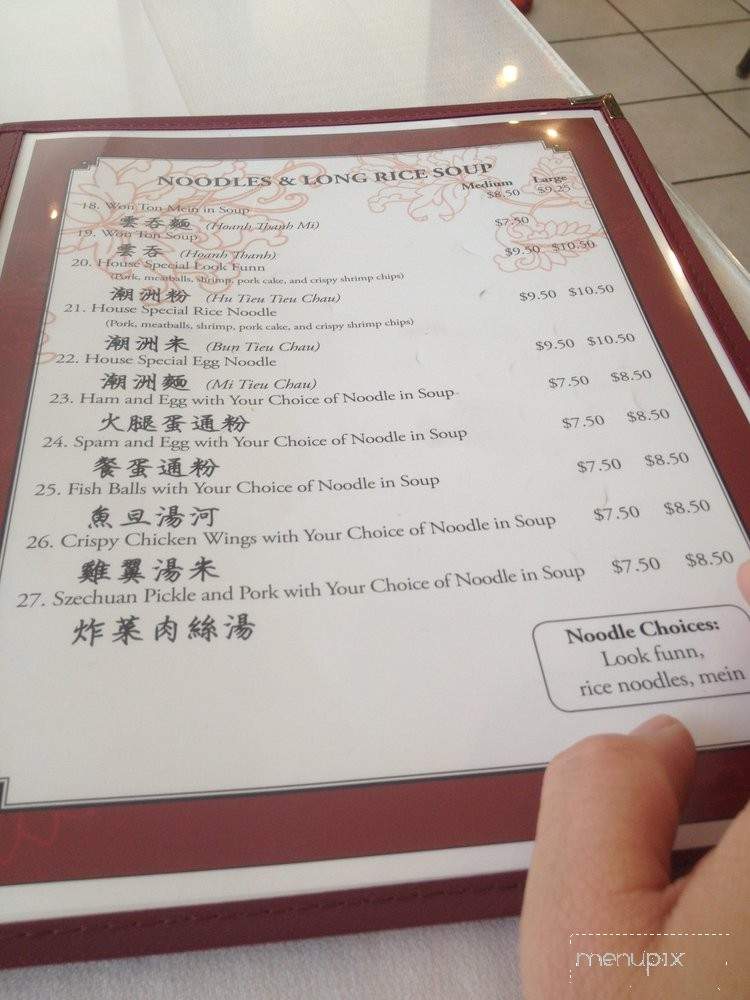 NOODLES & LONG RICE SOUP
Medium Large
18. Won Ton Mein in Soup $8.50 $9.25
雲吞麵 (Hoanh Thanh Mi)
19. Won Ton Soup $7.50
雲吞 (Hoanh Thanh)
20. House Special Look Funn $9.50 $10.50
(Pork, meatballs, shrimp, pork cake, and crispy shrimp chips)
潮洲粉 (Hu Tieu Tieu Chau)
21. House Special Rice Noodle $9.50 $10.50
(Pork, meatballs, shrimp, pork cake, and crispy shrimp chips)
潮洲米 (Bun Tieu Chau)
22. House Special Egg Noodle $9.50 $10.50
潮洲麵 (Mi Tieu Chau)
23. Ham and Egg with Your Choice of Noodle in Soup $7.50 $8.50
火腿蛋通粉
24. Spam and Egg with Your Choice of Noodle in Soup $7.50 $8.50
餐蛋通粉
25. Fish Balls with Your Choice of Noodle in Soup $7.50 $8.50
魚旦湯河
26. Crispy Chicken Wings with Your Choice of Noodle in Soup $7.50 $8.50
雞翼湯米
27. Szechuan Pickle and Pork with Your Choice of Noodle in Soup $7.50 $8.50
炸菜肉絲湯
Noodle Choices:
Look funn,
rice noodles, mein
menupix